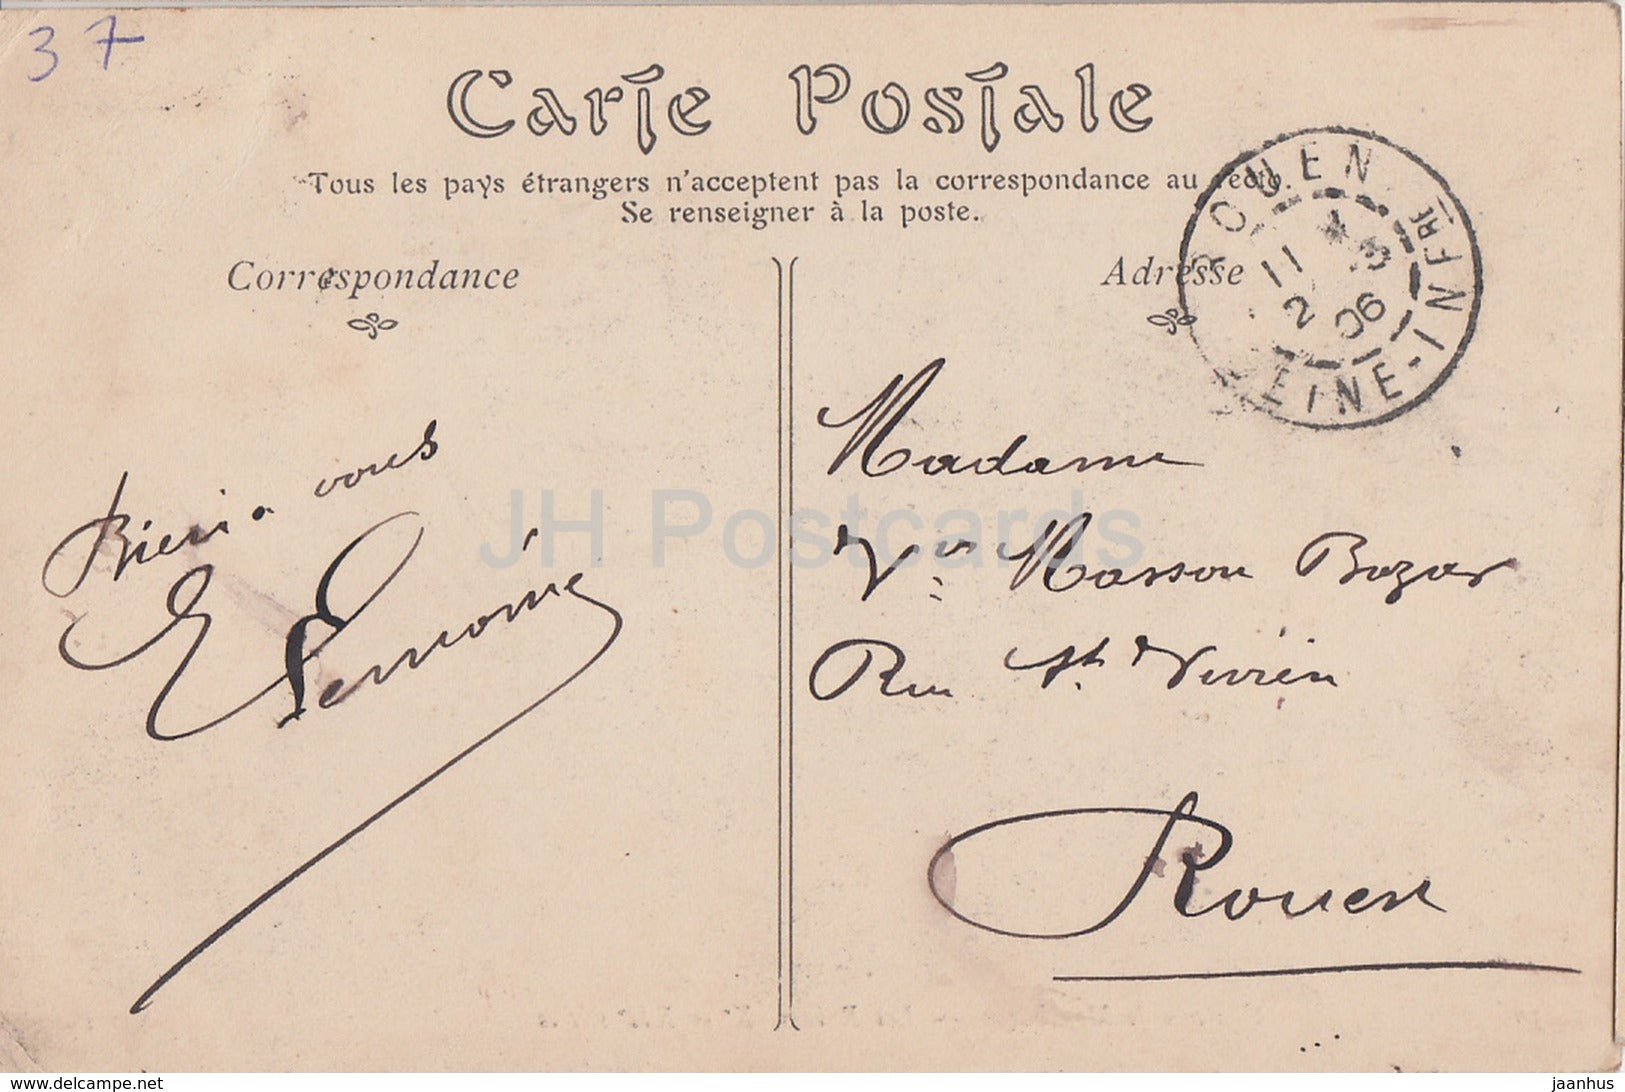 37
Carte Postale
Tous les pays étrangers n'acceptent pas la correspondance au recto.
Se renseigner à la poste.
Correspondance
Adresse
ROUEN
SEINE-INFRE
11 * 3
2 06
Bien à vous
E Lemoine
Madame
Vve Masson Bazar
Rue St Vivien
Rouen
JH Postcards
www.delcampe.net
jaanhus